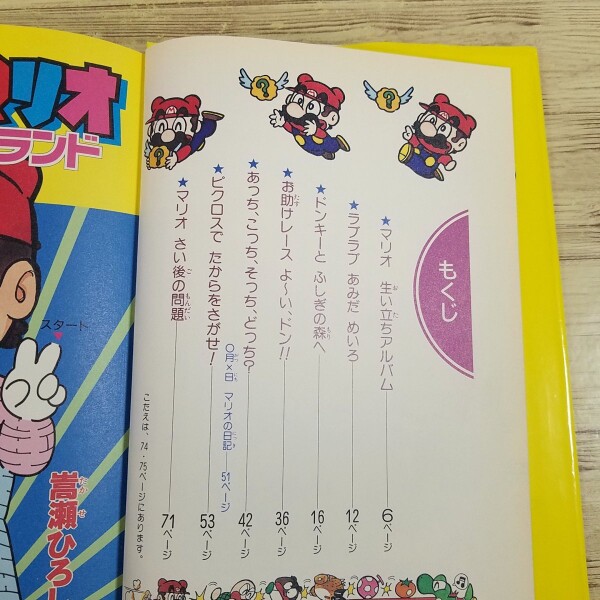 マリオ
ランド
スタート
嵩瀬ひろし
たかせ
もくじ
★マリオ 生い立ちアルバム 6ページ
★ラブラブ あみだ めいろ 12ページ
★ドンキーと ふしぎの森へ 16ページ
★お助けレース よ〜い、ドン!! 36ページ
★あっち、こっち、そっち、どっち? 42ページ
〇月×日 マリオの日記 51ページ
★ピクロスで たからをさがせ! 53ページ
★マリオ さい後の問題 71ページ
こたえは、74・75ページにあります。